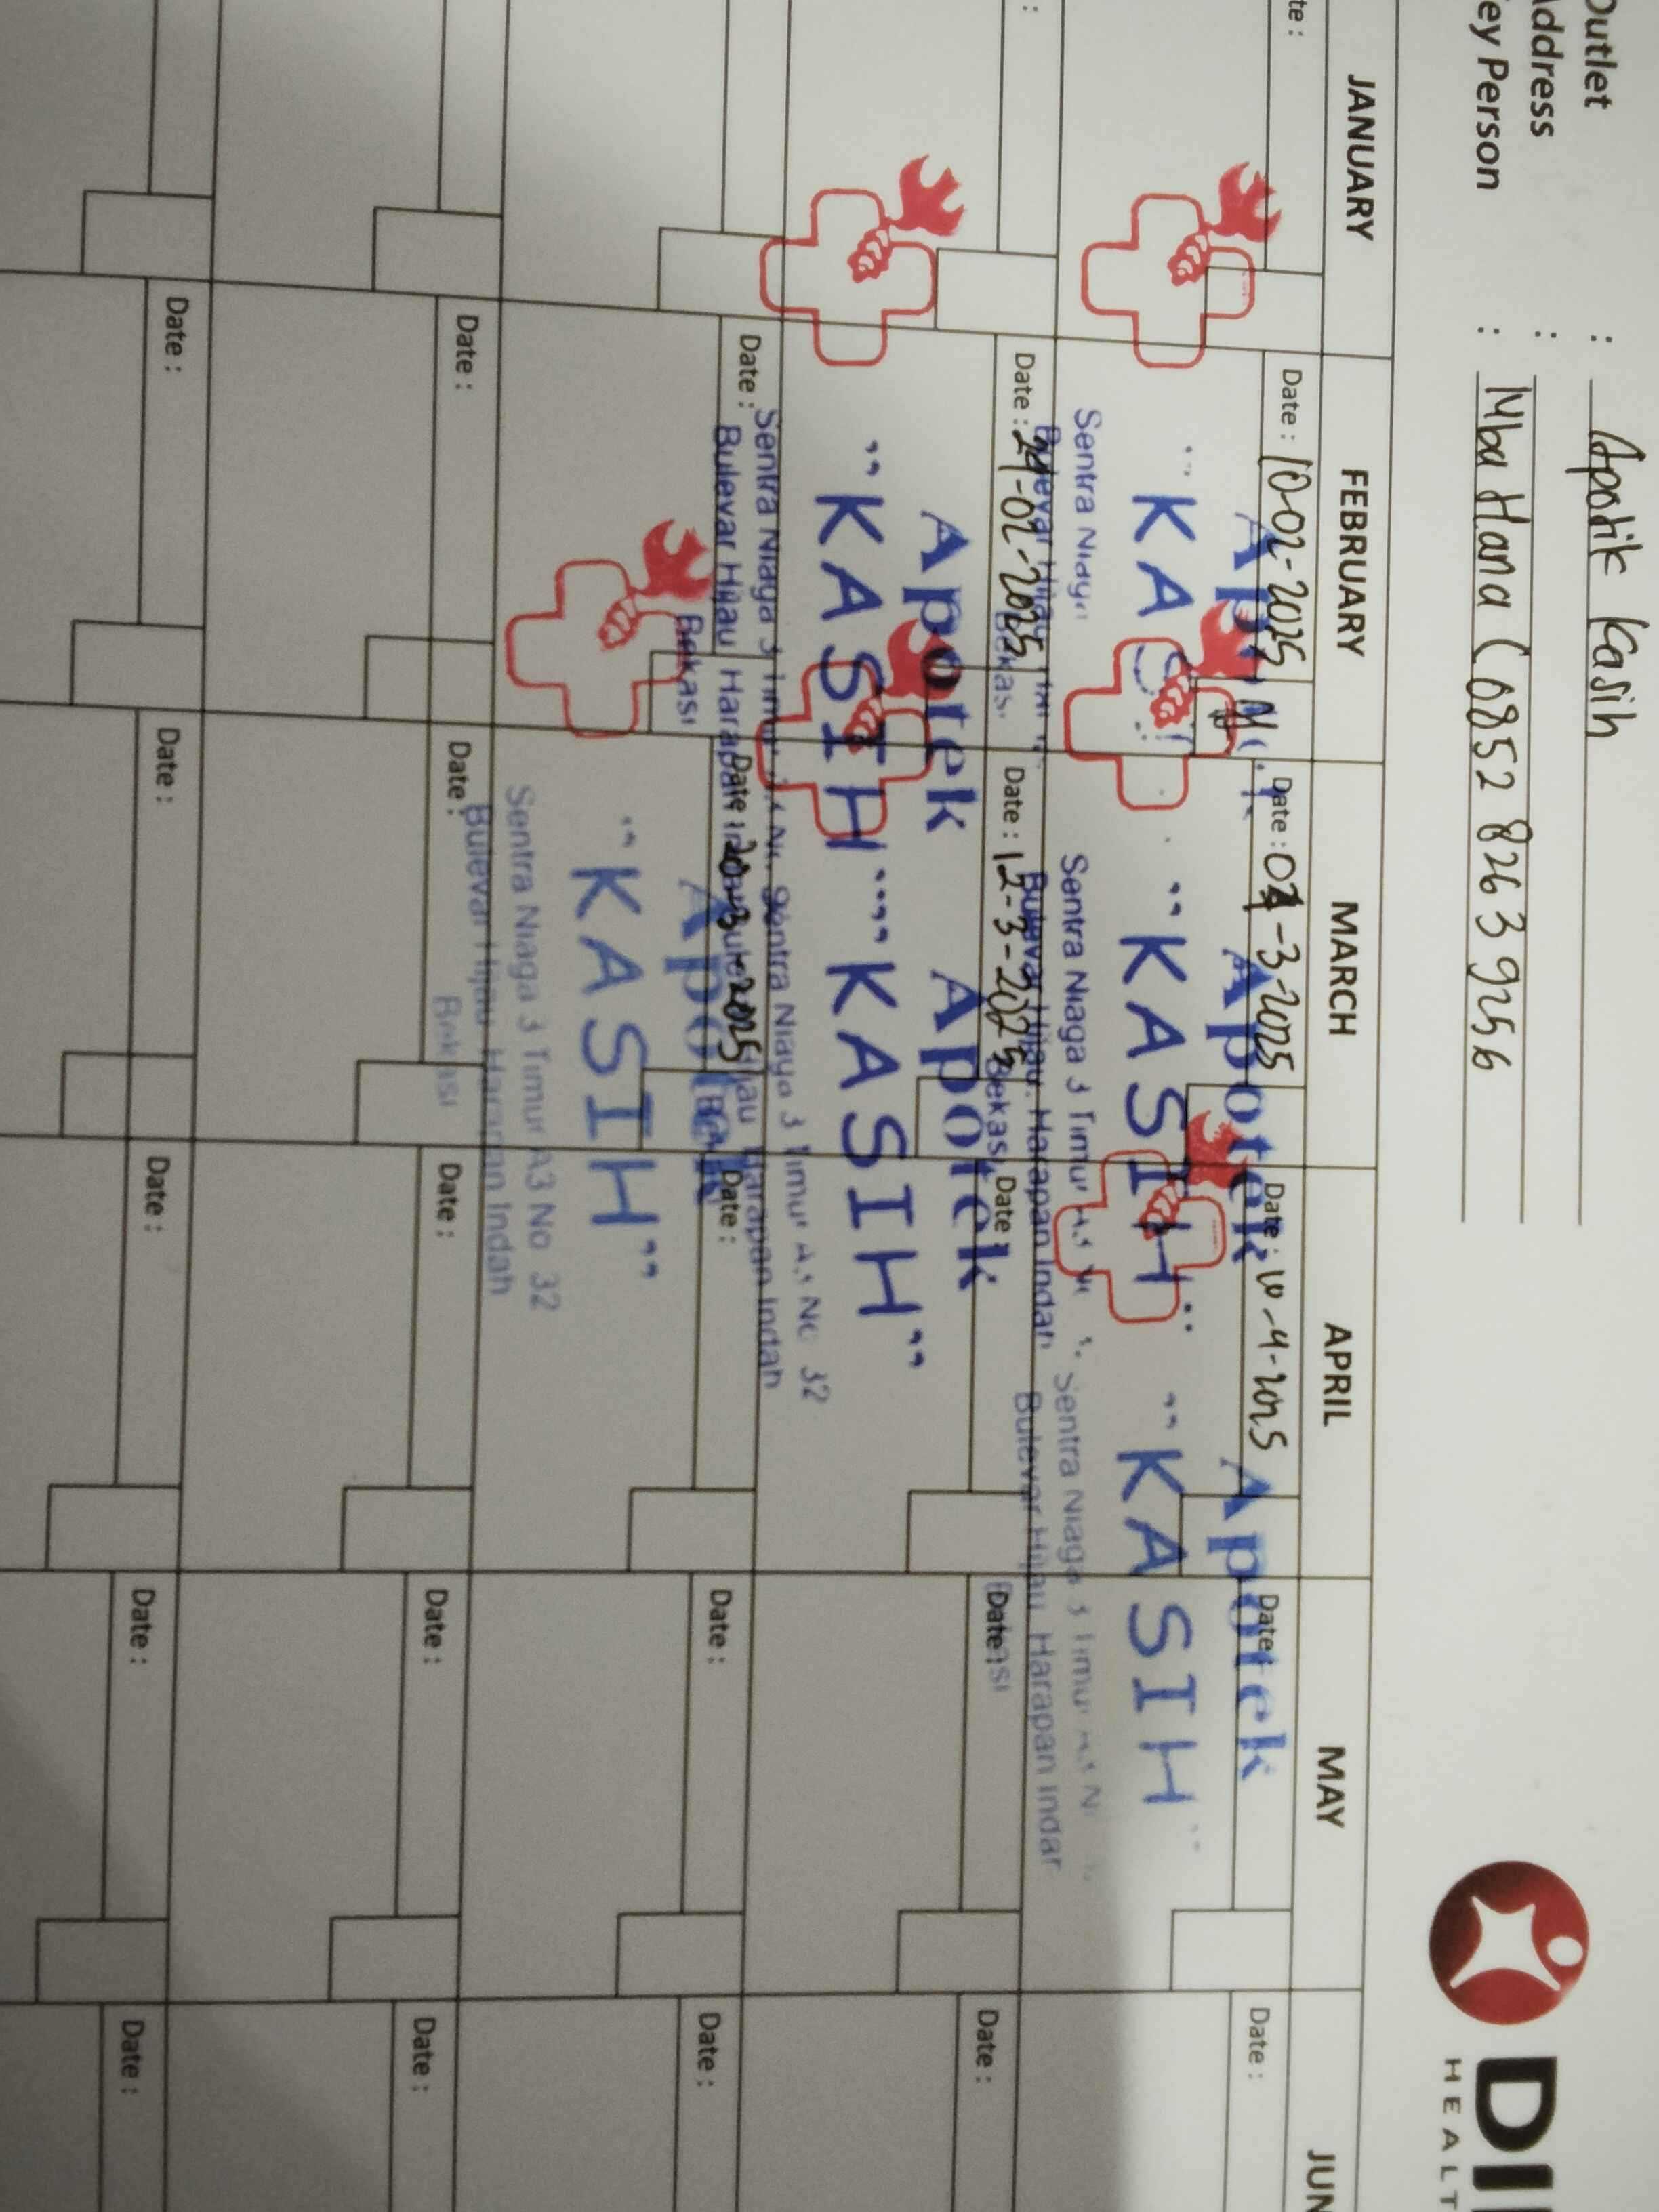 Outlet : Apotik Kasih
Address :
ey Person : Mba Hana ( 0852 8263 9256
DI
HEALT
JANUARY FEBRUARY MARCH APRIL MAY JUN
te : Date : 10-02-2025 Date : 04-3-2025 Date : 10-4-2025 Date : Date :
Apotek Apotek
"KA "KASIH" "KASIH"
Sentra Niaga Sentra Niaga 3 Timur Sentra Niaga 3 Timur
Bulevar Hijau Bulevar Hijau, Harapan Indah Bulevar Hijau, Harapan Indah
Bekasi Bekasi Bekasi
: Date : 24-02-2025 Date : 12-3-2025 Date : Date : Date :
Apotek Apotek
"KASIH" "KASIH"
Sentra Niaga 3 Timur Sentra Niaga 3 Timur A3 No 32
Bulevar Hijau Harapan Bulevar Hijau Harapan Indah
Bekasi
Date : Date : 20-3-2025 Date : Date : Date :
Apotek
"KASIH"
Sentra Niaga 3 Timur A3 No 32
Bulevar Hijau, Harapan Indah
Bekasi
Date : Date : Date : Date : Date :
Date : Date : Date : Date : Date :